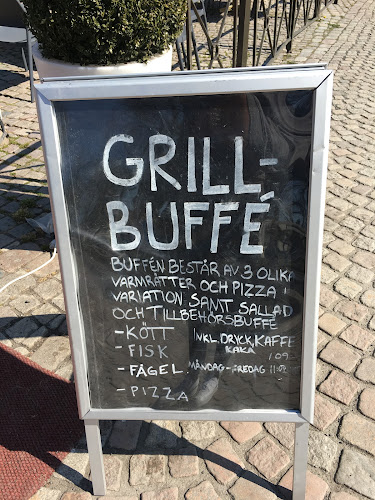 GRILL-
BUFFÉ
BUFFÉN BESTÅR AV 3 OLIKA
VARMRÄTTER OCH PIZZA I
VARIATION SAMT SALLAD
OCH TILLBEHÖRSBUFFÉ
- KÖTT INKL. DRYCK, KAFFE
- FISK KAKA
109
- FÅGEL MÅNDAG-FREDAG
- PIZZA